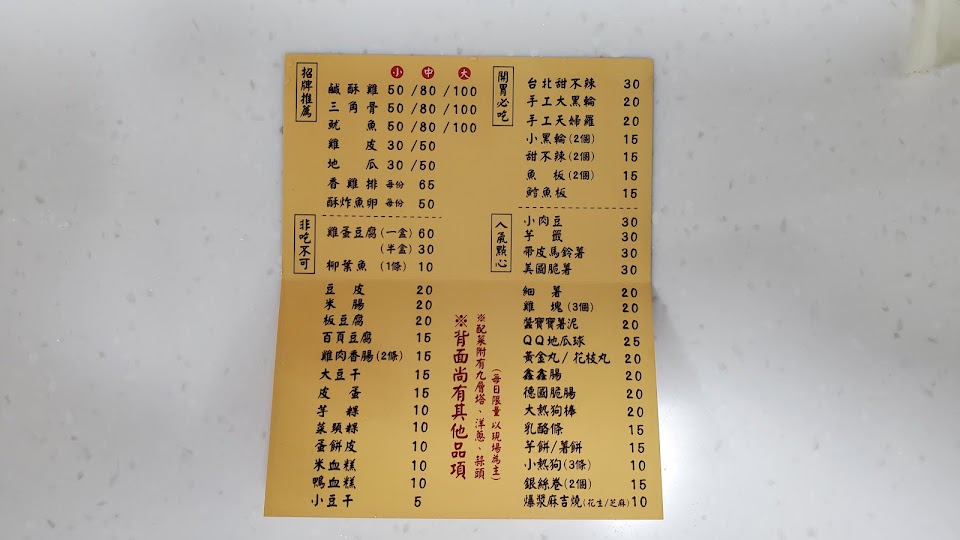 招牌推薦
小 中 大
鹹酥雞 50/80/100
三角骨 50/80/100
魷魚 50/80/100
雞皮 30/50
地瓜 30/50
香雞排 每份 65
酥炸魚卵 每份 50
非吃不可
雞蛋豆腐(一盒) 60
(半盒) 30
柳葉魚 (1條) 10
豆皮 20
米腸 20
板豆腐 20
百頁豆腐 15
雞肉香腸(2條) 15
大豆干 15
皮蛋 15
芋粿 10
菜頭粿 10
蛋餅皮 10
米血糕 10
鴨血糕 10
小豆干 5
※背面尚有其他品項
※配菜附有九層塔、洋蔥、蒜頭
(每日限量以現場為主)
開胃必吃
台北甜不辣 30
手工大黑輪 20
手工天婦羅 20
小黑輪(2個) 15
甜不辣(2個) 15
魚板(2個) 15
鱈魚板 15
人氣點心
小肉豆 30
芋籤 30
帶皮馬鈴薯 30
美國脆薯 30
細薯 20
雞塊(3個) 20
薯寶寶薯泥 20
QQ地瓜球 25
黃金丸/花枝丸 20
鑫鑫腸 20
德國脆腸 20
大熱狗棒 20
乳酪條 15
芋餅/薯餅 15
小熱狗(3條) 10
銀絲卷(2個) 15
爆漿麻吉燒(花生/芝麻) 10